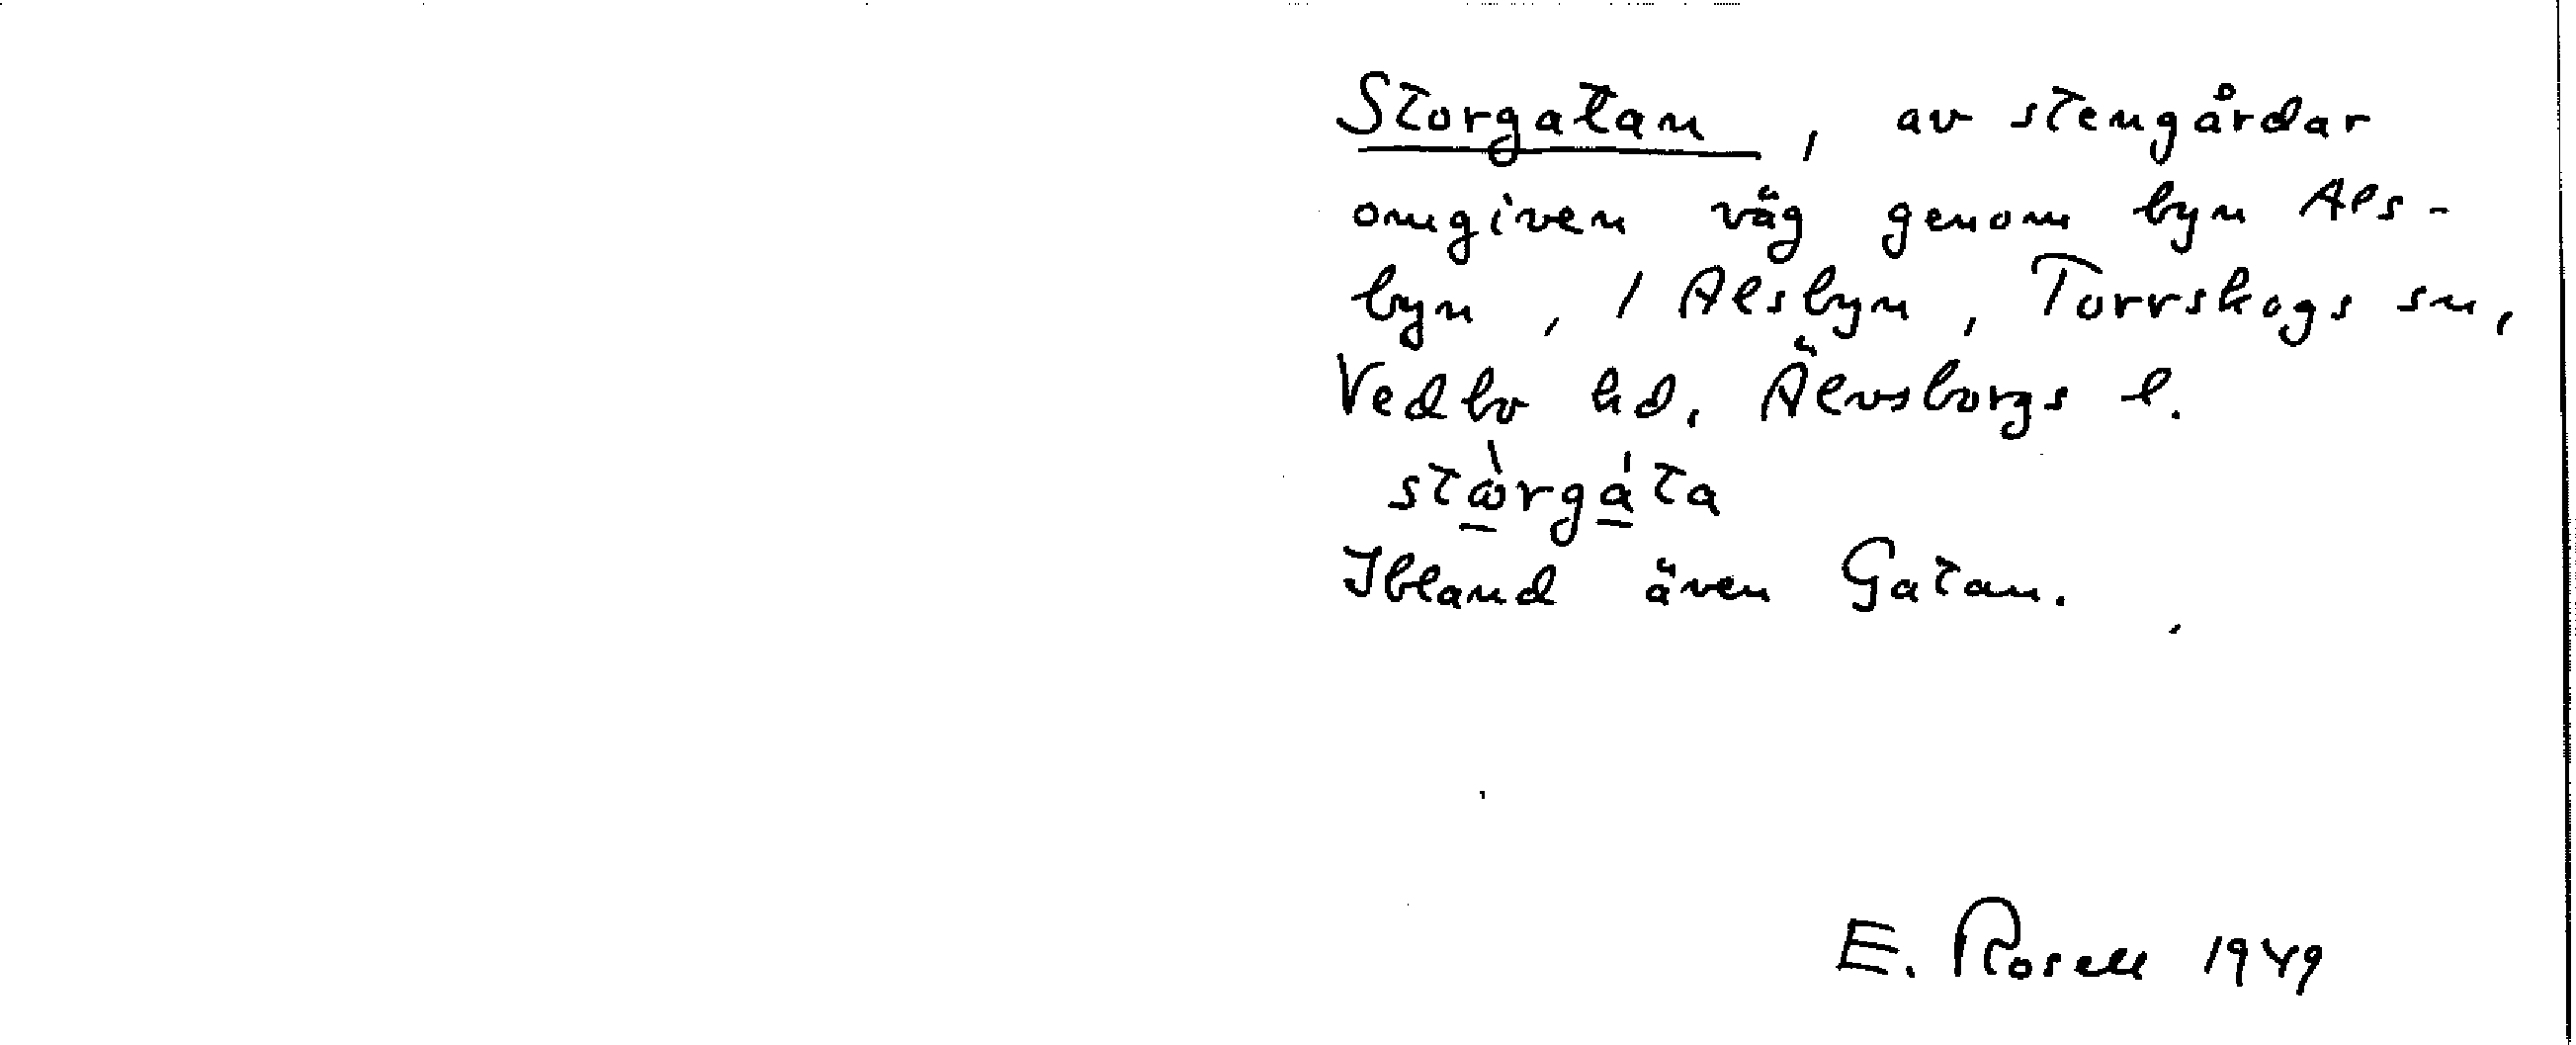 Storgatan, av stengårdar
omgiven väg genom byn Als-
byn, 1 Alsbyn, Torrskogs sn,
Vedbo hd. Älvsborgs l.
stὼ̠rgá̠ta
Ibland även Gatan.
E. Rosell 1949